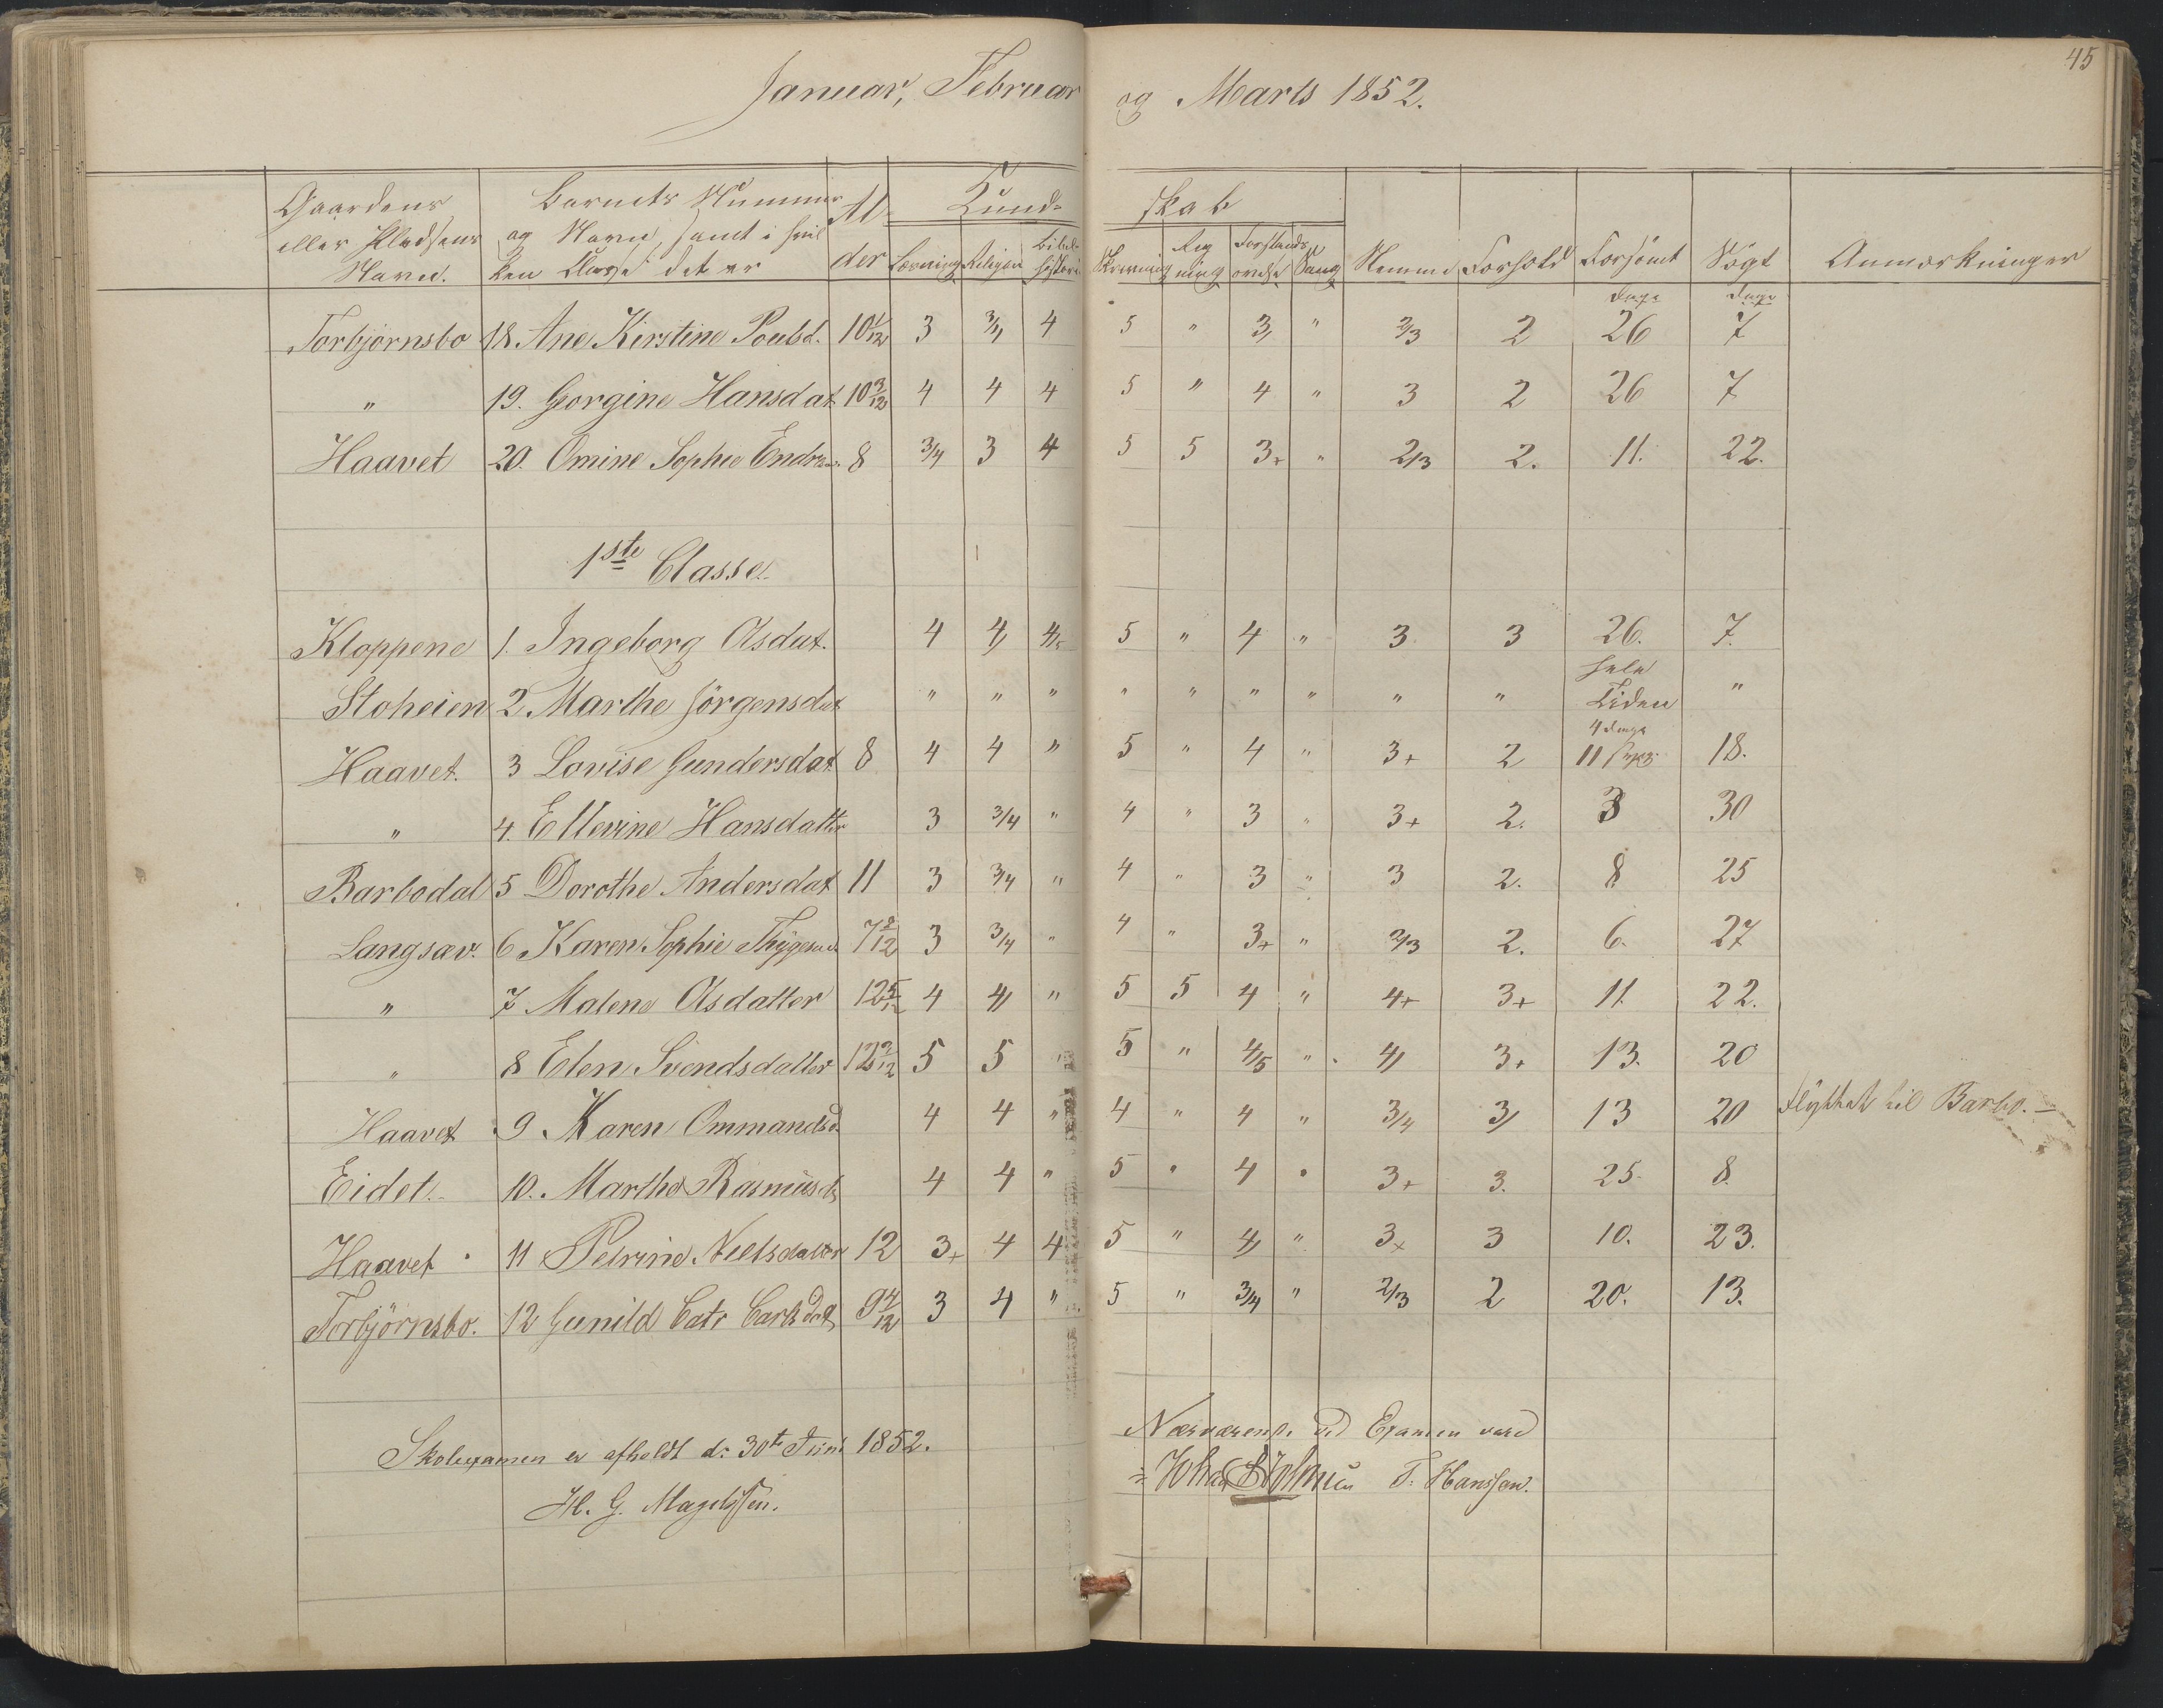 45
Januar, Februar og Marts 1852.
Gaardens eller Pladsens Navn. | Barnets Nummer og Navn, samt i hvilken Classe det er | Alder | Kundskab | Nemme | Forhold | Forsömt | Sögt | Anmærkninger
Læsning | Religion | Bibelhistorie | Skrivning | Regning | Forstands | Sang
Dage | Dage
Torbjörnsbo | 18. Ane Kirstine Poulsd. | 10 1/12 | 3 | 3/4 | 4 | 5 | " | 3/ | " | 2/3 | 2 | 26 | 7
" | 19. Gorgine Hansdat. | 10 3/12 | 4 | 4 | 4 | 5 | " | 4 | " | 3 | 2 | 26 | 7
Haavet | 20. Omine Sophie | 8 | 3/4 | 3 | 4 | 5 | 5 | 3+ | " | 2/3 | 2. | 11. | 22.
1ste Classe.
Kloppene | 1. Ingeborg Olsdat. | 4 | 4/ | 4/5 | 5 | " | 4 | " | 3 | 3 | 26. | 7.
Stoheien | 2 Marthe Jörgensdat | " | " | " | " | " | " | " | " | " | hele Tiden | "
Haavet. | 3 Lovise Gundersdat | 8 | 4 | 4 | " | 5 | " | 4 | " | 3+ | 2 | 4 dage 11 | 18.
" | 4. Ellevine Hansdatter | 3 | 3/4 | " | 4 | " | 3 | " | 3+ | 2. | 3 | 30
Barbodal | 5 Dorothe Andersdat | 11 | 3 | 3/4 | " | 4 | " | 3 | " | 3 | 2. | 8 | 25
Langsæv. | 6 Karen Sophie | 7 8/12 | 3 | 3/4 | " | 4 | " | 3+ | " | 2/3 | 2. | 6. | 27
" | 7 Malene Olsdatter | 12 5/12 | 4 | 4/ | " | 5 | 5 | 4 | " | 4+ | 3+ | 11. | 22.
" | 8 Elen Svendsdatter | 12 2/12 | 5 | 5 | " | 5 | " | 4/5 | " | 4/ | 3+ | 13. | 20
Haavet | 9 Karen Ommandsd. | 4 | 4 | " | 4 | " | 4 | " | 3/4 | 3/ | 13 | 20 | Flyttet til Barbo. –
Eidet. | 10. Marthe Rasmusd. | 4 | 4 | " | 5 | " | 4 | " | 3+ | 3. | 25. | 8.
Haavet | 11 Petrine Nielsdatter | 12 | 3+ | 4 | 4 | 5 | " | 4/ | " | 3+ | 3 | 10. | 23.
Torbjörnsbo. | 12 Gunild Catr Carlsdat | 9 4/12 | 3 | 4 | " | 5 | " | 3/4 | " | 2/3 | 2 | 20. | 13.
Skolexamen er afholdt d: 30te Juni 1852.
H. G. Magelssen.
Nærværende ved Examen vare
T. Hanssen.